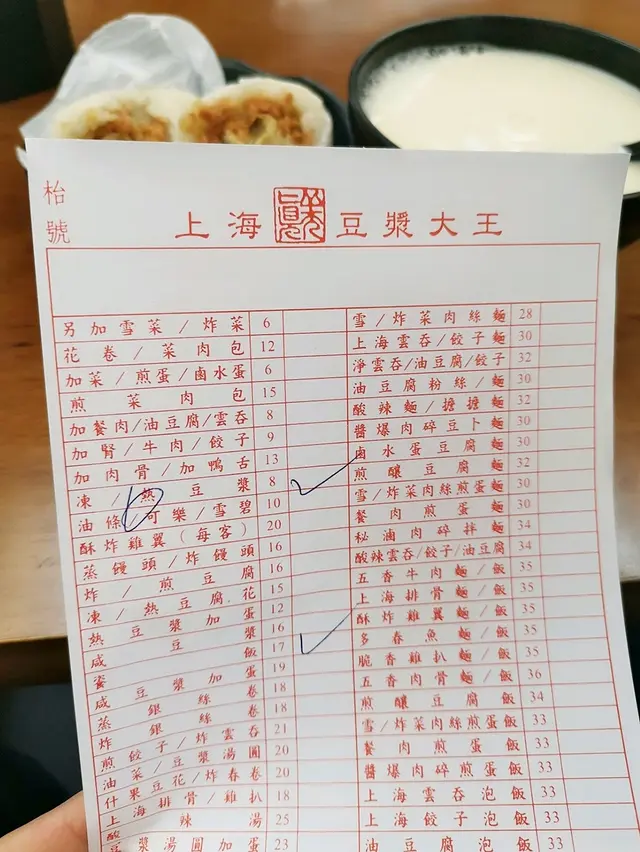 枱號
上海豆漿大王
另加雪菜/炸菜 6
花卷/菜肉包 12
加菜/煎蛋/鹵水蛋 6
煎菜肉包 15
加餐肉/油豆腐/雲吞 8
加腎/牛肉/餃子 9
加肉骨/加鴨舌 13
凍/熱豆漿 8
油條/可樂/雪碧 10
酥炸雞翼(每客) 20
蒸饅頭/炸饅頭 16
炸/煎豆腐 16
凍/熱豆腐花 15
熱豆漿加蛋 12
咸豆漿 16
粢飯 17
咸豆漿加蛋 19
蒸銀絲卷 18
炸銀絲卷 18
煎餃子/炸雲吞 21
油菜/豆漿湯圓 20
什果豆花/炸春卷 20
上海排骨/雞扒 18
酸辣湯 25
豆漿湯圓加蛋 23
雪/炸菜肉絲麵 28
上海雲吞/餃子麵 30
淨雲吞/油豆腐/餃子 32
油豆腐粉絲/麵 30
酸辣麵/擔擔麵 32
醬爆肉碎豆卜麵 30
鹵水蛋豆腐麵 30
煎釀豆腐麵 32
雪/炸菜肉絲煎蛋麵 30
餐肉煎蛋麵 30
秘滷肉碎拌麵 34
酸辣雲吞/餃子/油豆腐 34
五香牛肉麵/飯 35
上海排骨麵/飯 35
酥炸雞翼麵/飯 35
多春魚麵/飯 35
脆香雞扒麵/飯 35
五香肉骨麵/飯 36
煎釀豆腐飯 34
雪/炸菜肉絲煎蛋飯 33
餐肉煎蛋飯 33
醬爆肉碎煎蛋飯 33
上海雲吞泡飯 33
上海餃子泡飯 33
油豆腐泡飯 33